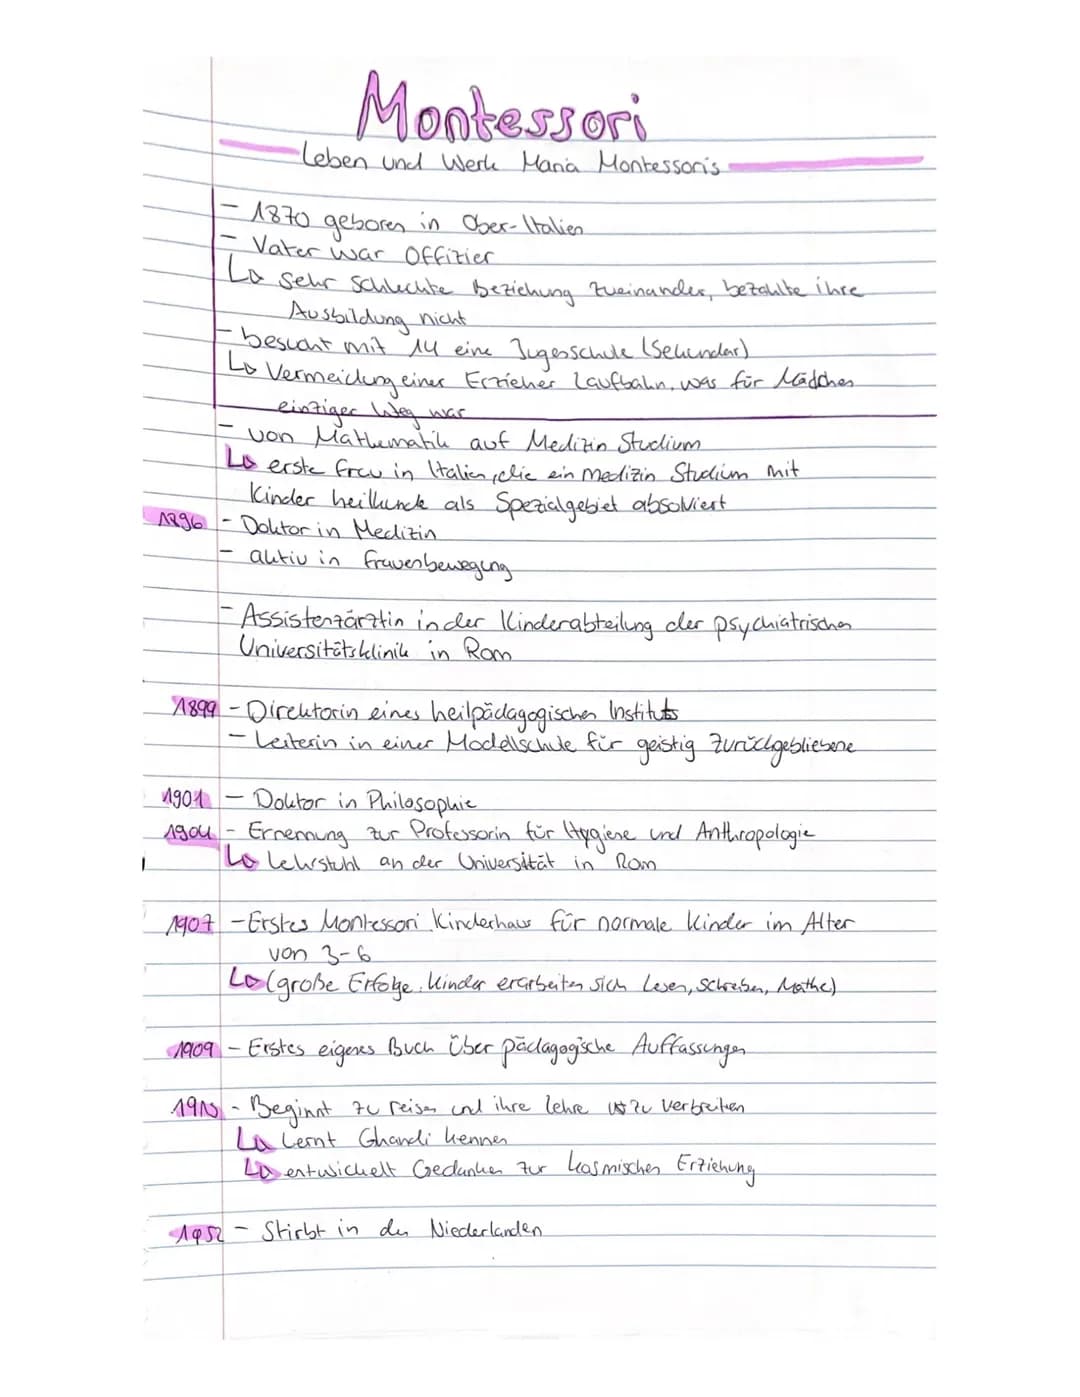 Montessori
Leben und Werk Maria Montessori's
- 1870 geboren in Ober-Italien
- Vater war Offizier
↳ sehr schlechte Beziehung zueinander, bezahlte ihre
Ausbildung nicht
- besucht mit 14 eine Jugesschule (Sekundar)
↳ Vermeidung einer Erzieher Laufbahn, was für Mädchen
einziger Weg war
- von Mathematik auf Medizin Studium
↳ erste Frau in Italien, die ein Medizin Studium mit
Kinder heilkunde als Spezialgebiet absolviert
1896 - Doktor in Medizin
- aktiv in Frauenbewegung
- Assistenzärztin in der Kinderabteilung der psychiatrischen
Universitätsklinik in Rom
1899 - Direktorin eines heilpädagogischen Instituts
- Leiterin in einer Modellschule für geistig Zurückgebliebene
1901 - Doktor in Philosophie
1904 - Ernennung zur Professorin für Hygiene und Anthropologie
↳ Lehrstuhl an der Universität in Rom
1907 - Erstes Montessori Kinderhaus für normale Kinder im Alter
von 3-6
↳ (große Erfolge. Kinder erarbeiten sich Lesen, Schreiben, Mathe)
1909 - Erstes eigenes Buch über pädagogische Auffassungen
1910 - Beginnt zu reisen und ihre Lehre zu verbreiten
↳ Lernt Ghandi kennen
↳ entwickelt Gedanken zur kosmischen Erziehung
1952 - Stirbt in den Niederlanden